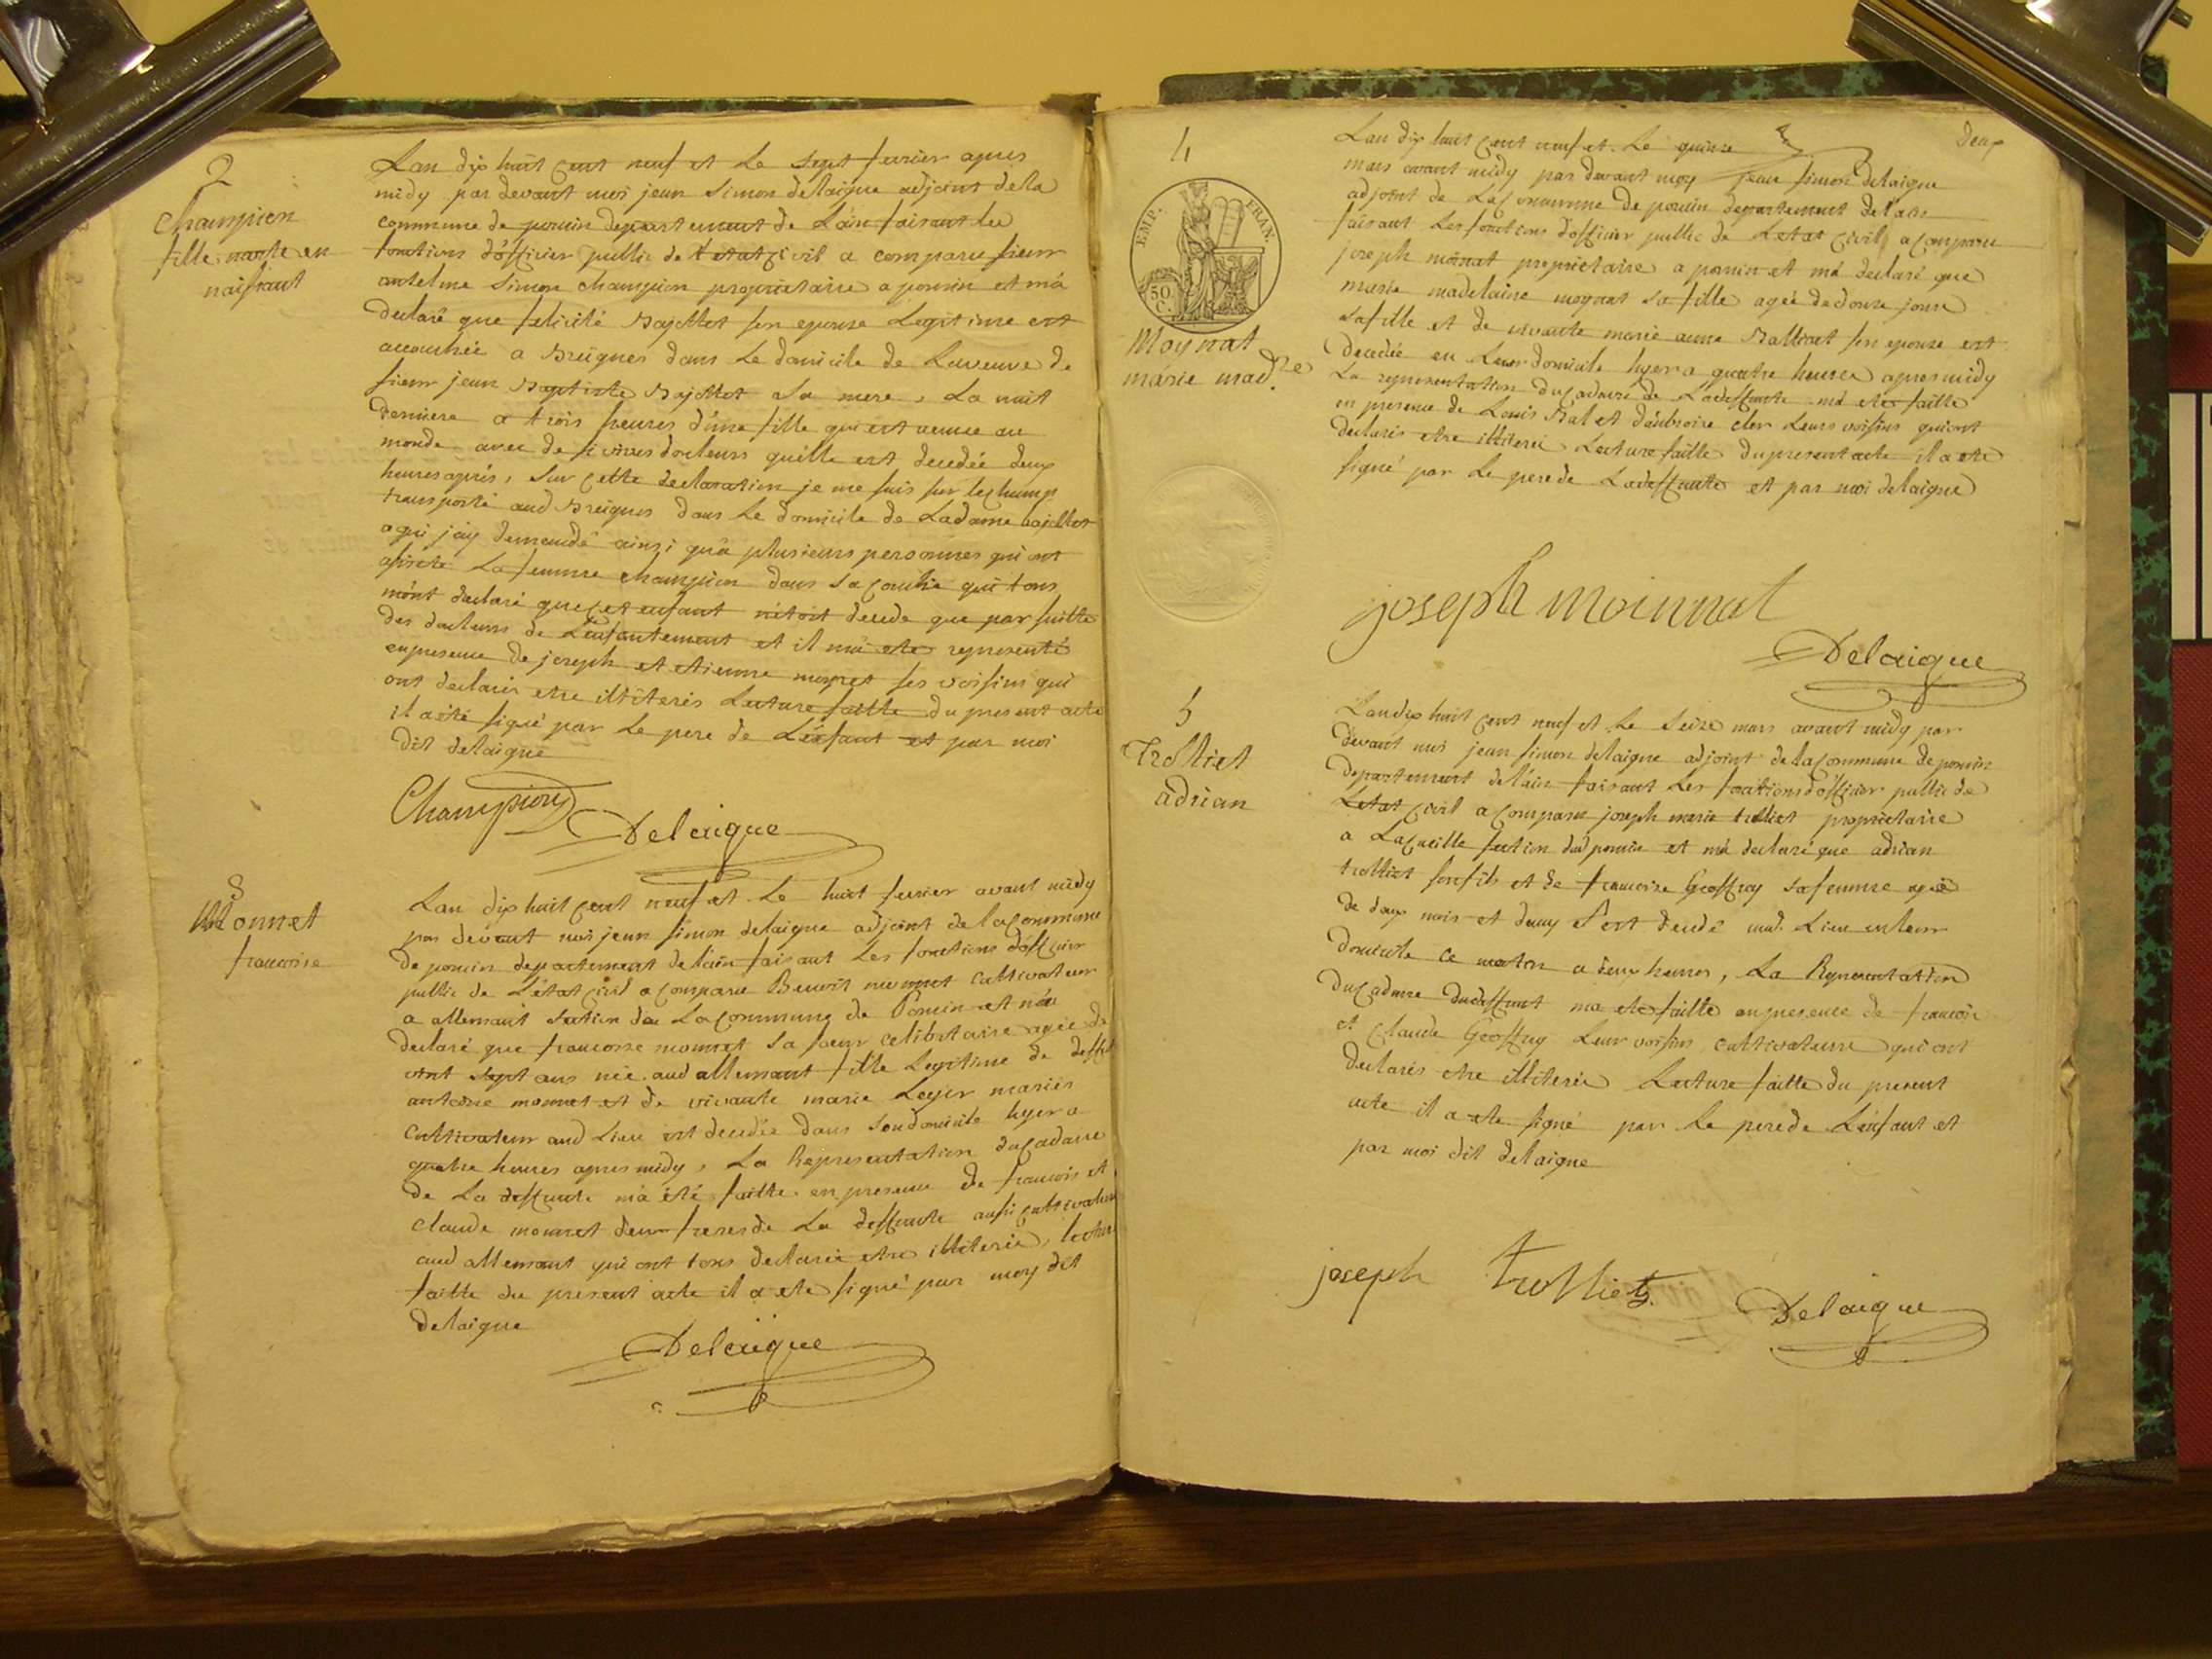 2
Champion
fille morte en
naissant
Lan dix huit cent neuf et le sept fevrier apres
midy par devant moi jean simon delaigue adjoint de la
commune de poncin departement de Lain faisant les
fonctions d'officier public de Letat civil a comparu sieur
antelme Simon Champion proprietaire a poncin et m'a
declaré que felicité Bajollet son epouse Legitime est
accouchée a Breignes dans Le domicile de La veuve de
sieur jean Baptiste Bajollet sa mere, La nuit
derniere a trois heures d'une fille qui est venue au
monde avec de si vives douleurs quelle est decedée deux
heures aprés, sur cette declaration je me suis sur le champ
transporté aud Breignes dans Le domicile de Ladame bajollet
a qui j'ay demandé ainsi qu'a plusieurs personnes qui ont
assisté La femme champion dans sa couche qui tous
m'ont declaré que cet enfant n'etoit decede que par suitte
des douleurs de L'enfantement et il m'a ete representé
en presence de joseph et etienne ses voisins qui
ont declarés etre illiterés Lecture faitte du present acte
il a été signé par Le pere de L'enfant et par moi
dit delaigue
Champion
Delaigue
3
Monnet
francoise
Lan dix huit cent neuf et Le huit fevrier avant midy
par devant moi jean simon delaigue adjoint de la Commune
de poncin departement de lain faisant Les fonctions d'officier
public de L'état civil a comparu Benoit monnet cultivateur
a allemant section de La commune de Poncin et m'a
declaré que francoise monnet sa soeur celibataire agée de
vint sept ans née aud allemant fille Legitime de deffunt
antoine monnet et de vivante marie Leger mariés
Cultivateurs aud Lieu est decedée dans son domicile hyer a
quatre heures apres midy, La Representation du cadavre
de La deffunte m'a été faitte en presence de francois et
claude monnet deux freres de La deffunte aussi cultivateurs
aud allemant qui ont tous declarés etre illiterés, lecture
faitte du present acte il a ete signé par moy dit
delaigue
Delaigue
deux
4
EMP. FRAN.
50 C.
Moynat
marie mad.ne
Lan dix huit cent neuf et Le quinze
mars avant midy par devant moy jean simon delaigue
adjoint de La Commune de poncin departement de lain
faisant Les fonctions d'officier public de Letat civil a comparu
joseph moinat proprietaire a poncin et m'a declaré que
marie madelaine moynat sa fille agée de douze jours
sa fille et de vivante marie anne Ballivet son epouse est
decedée en Leur domicile hyer a quatre heures apres midy
La representation du cadavre de Ladeffunte m'a ete faitte
en presence de Louis Bal et d'ambroise cler Leurs voisins qui ont
declarés etre illiterés Lecture faitte du present acte il a ete
signé par Le pere de Ladeffunte et par moi delaigue
joseph moinnat
Delaigue
5
Trolliet
adrian
Lan dix huit cent neuf et Le seize mars avant midy par
devant moi jean simon delaigue adjoint de la Commune de poncin
departement de lain faisant Les fonctions d'officier public de
Letat civil a comparu joseph marie trolliet proprietaire
a La cueille section dud poncin et m'a declaré que adrian
trolliet son fils et de francoise Geoffray sa femme agé
de deux mois et demy est decedé aud. Lieu en leur
domicile ce matin a deux heures, La Representation
du cadavre du deffunt m'a ete faitte en presence de francois
et Claude Geoffray Leur voisins cultivateurs qui ont
declarés etre illiterés Lecture faitte du present
acte il a ete signé par le pere de L'enfant et
par moi dit delaigue
joseph trolliet
Delaigue